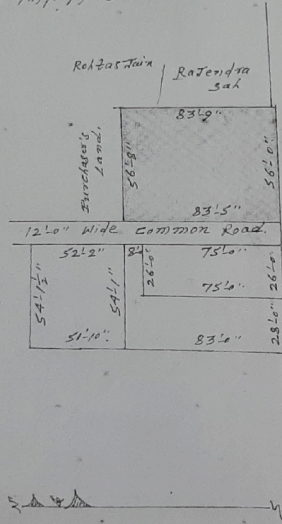 Rohtas Jain
Rajendra
sah
Purchaser's
Land.
83'-0"
56'-8"
56'-0"
83'-5"
12'-0" Wide common Road.
52'-2"
8'
75'-0"
54'-1½"
54'-1"
26'-0"
26'-0"
75'-0"
51'-10"
83'-0"
28'-0"